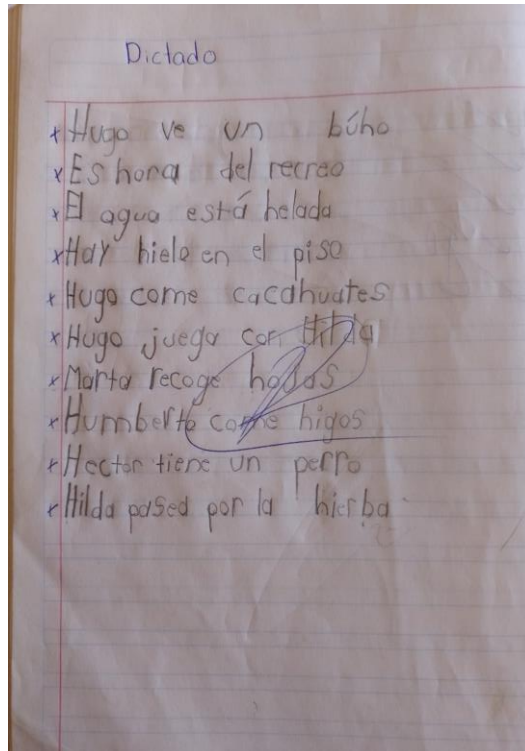 Dictado
x Hugo ve un búho
x Es hora del recreo
x El agua está helada
x Hay hielo en el piso
x Hugo come cacahuates
x Hugo juega con Hilda
x Marta recoge hojas
x Humberto come higos
x Hector tiene un perro
x Hilda pased por la hierba